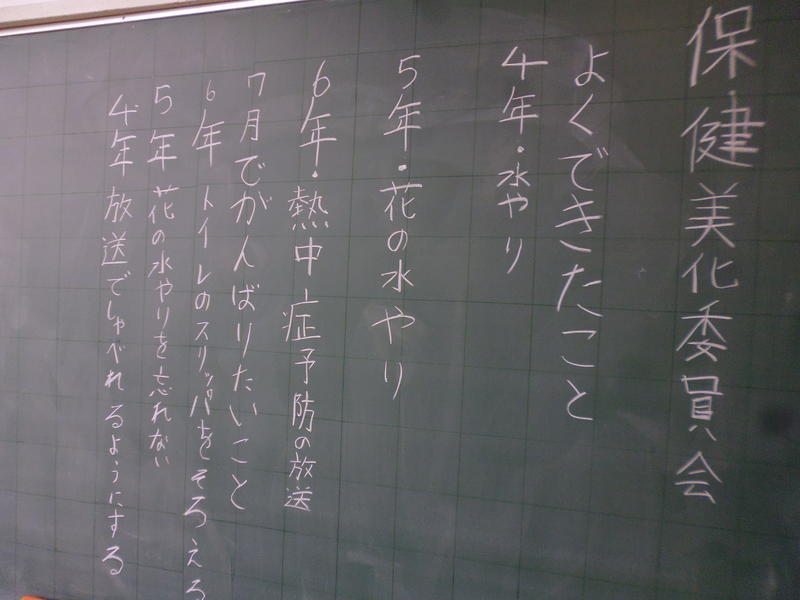 保健美化委員会
よくできたこと
4年・水やり
5年・花の水やり
6年・熱中症予防の放送
7月でがんばりたいこと
6年 トイレのスリッパをそろえる
5年 花の水やりを忘れない
4年 放送でしゃべれるようにする